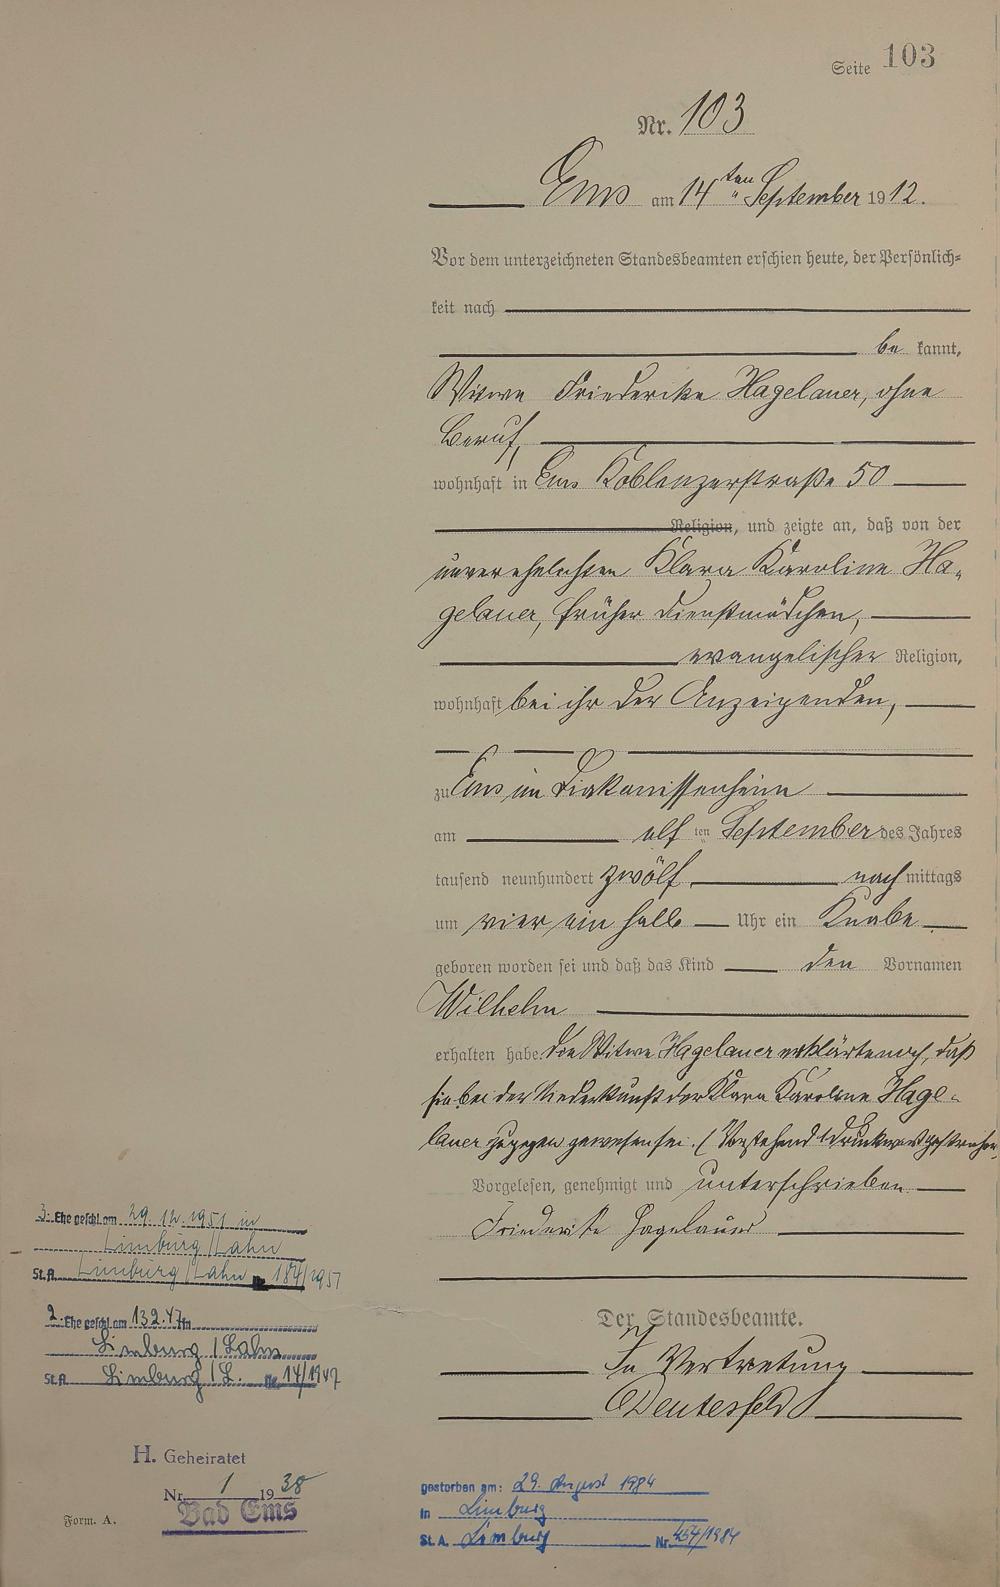 Seite 103
Nr. 103
Ems am 14ten September 1912.
Vor dem unterzeichneten Standesbeamten erschien heute, der Persönlich=
keit nach
be kannt,
Witwe Friedericke Hagelauer, ohne
Beruf,
wohnhaft in Ems Koblenzerstraße 50
Religion, und zeigte an, daß von der
unverehelichten Klara Karoline Ha-
gelauer, früher Dienstmädchen,
evangelischer Religion,
wohnhaft bei ihr der Anzeigenden,
zu Ems im Diakonissenheim
am elf ten September des Jahres
tausend neunhundert zwölf nach mittags
um vier ein halb Uhr ein Knabe
geboren worden sei und daß das Kind den Vornamen
Wilhelm
erhalten habe. Die Witwe Hagelauer erklärte noch, daß
sie bei der Niederkunft der Klara Karoline Hage-
lauer zugegen gewesen sei. (Vorstehend 1 Druckwort gestrichen.
Vorgelesen, genehmigt und unterschrieben
Friederike Hagelauer
Der Standesbeamte.
In Vertretung
3. Ehe geschl. am 29.12.1951 in
Limburg/Lahn
St.A. Limburg/Lahn Nr. 184/1951
2. Ehe geschl. am 13.2.47 in
Limburg / Lahn
St.A. Limburg / L. Nr. 14/1947
H. Geheiratet
Nr. 1 1938
Bad Ems
Form. A.
gestorben am: 29. August 1984
in Limburg
St. A. Limburg Nr. 454/1984